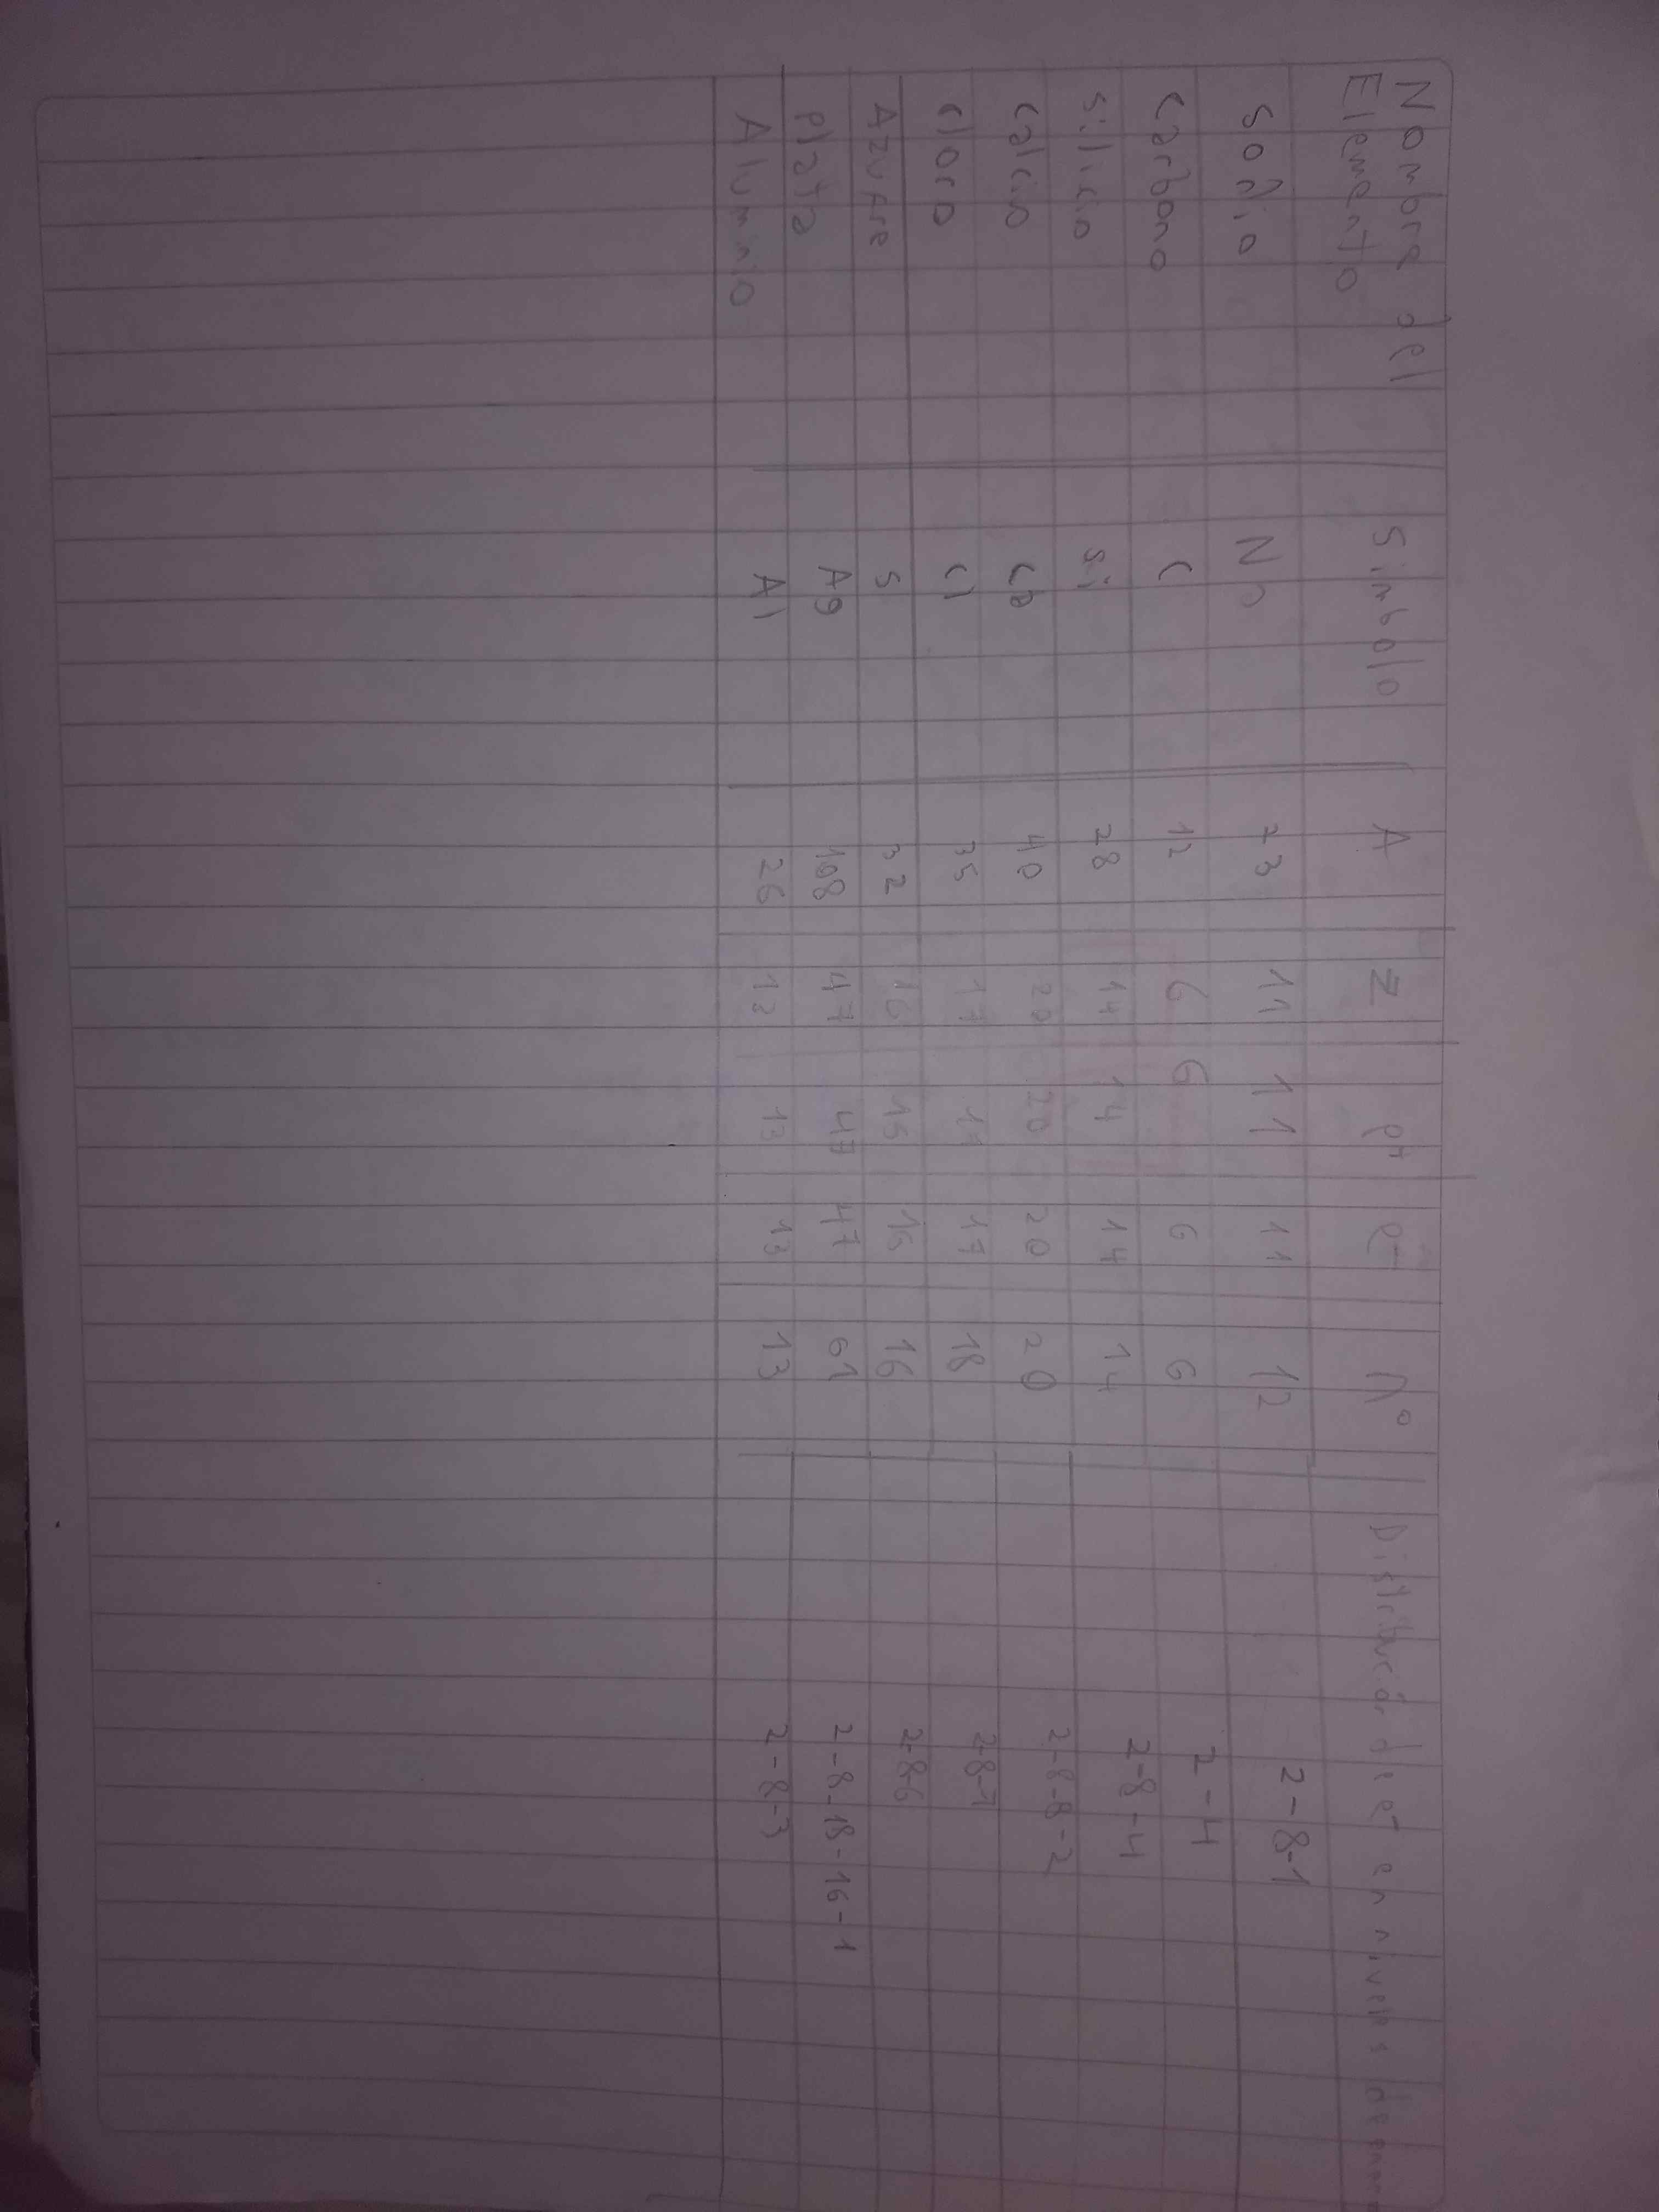 Nombre del Elemento Simbolo A Z p+ e- n° Distribución de e- en niveles de
Sodio Na 23 11 11 11 12 2-8-1
Carbono C 12 6 6 6 6 2-4
Silicio Si 28 14 14 14 14 2-8-4
Calcio Ca 40 20 20 20 20 2-8-8-2
Cloro Cl 35 17 17 17 18 2-8-7
Azufre S 32 16 16 16 16 2-8-6
Plata Ag 108 47 47 47 61 2-8-18-16-1
Aluminio Al 26 13 13 13 13 2-8-3